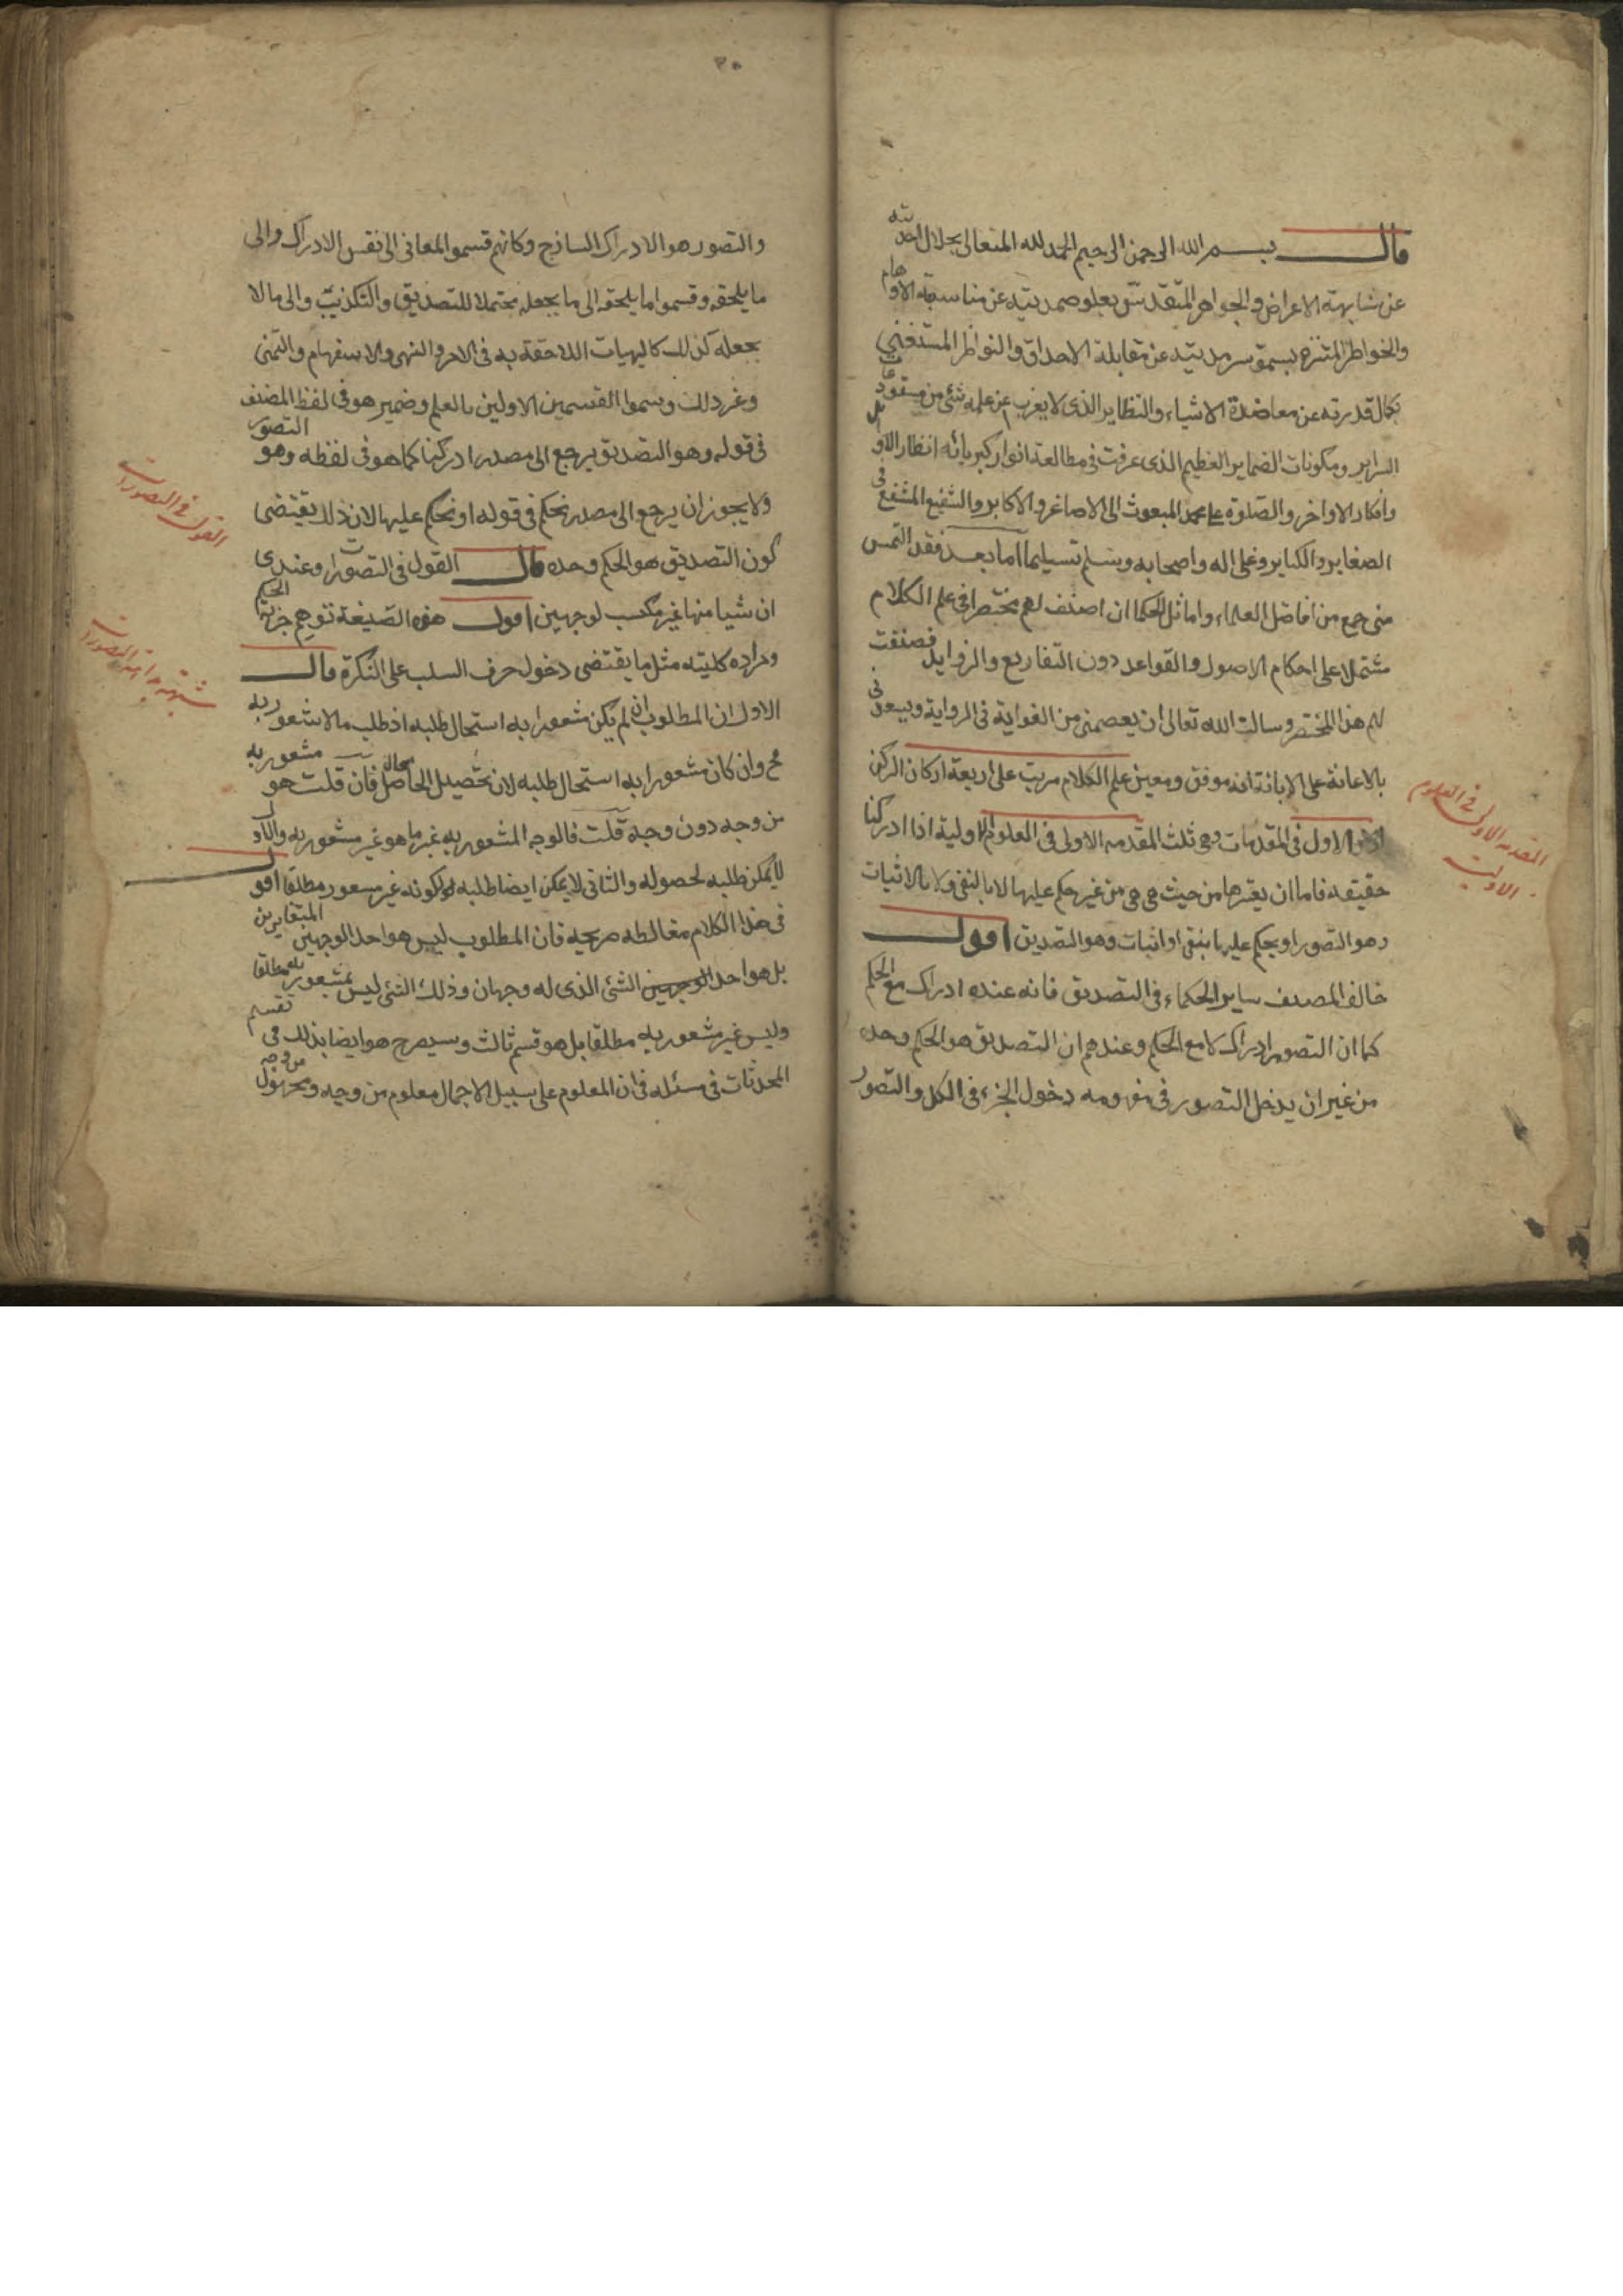 قال بسم الله الرحمن الرحيم الحمد لله المتعالى بجلال احديته
عن مشابهة الاعراض والجواهر المتقدس بعلو صمديته عن مناسبة الاوهام
والخواطر المتنزه بسمو سرمديته عن مقابلة الاحداق والنواظر المستغنى
بكمال قدرته عن معاضدة الاشياء والنظاير الذى لا يعزب عن علمه شئ من مستودعات
السراير ومكونات الضماير العظيم الذى غرقت فى مطالعة انوار كبريائه انظار الاوائل
وافكار الاواخر والصلوة على محمد المبعوث الى الاصاغر والاكابر والشفيع المشفع فى
الصغاير والكباير وعلى اله واصحابه وسلم تسليما اما بعد فقد التمس
منى جمع من افاضل العلماء واماثل الحكما ان اصنف لهم مختصرا فى علم الكلام
مشتملا على احكام الاصول والقواعد دون التفاريع والزوايد فصنفت
لهم هذا المختصر وسالت الله تعالى ان يعصمنى من الغواية فى الرواية ويسعدنى
بالاعانة على الابانة انه موفق ومعين علم الكلام مرتب على اربعة اركان الركن
الاول فى المقدمات وهى ثلث المقدمه الاولى فى العلوم الاولية اذا ادركنا
حقيقه فاما ان يعتبرها من حيث هى هى من غير حكم عليها لا بالنفى ولا بالاثبات
وهو التصور او يحكم عليها بنفى او اثبات وهو التصديق اقول
خالف المصنف ساير الحكماء فى التصديق فانه عنده ادراك مع الحكم
كما ان التصور ادراك لا مع الحكم وعندهم ان التصديق هو الحكم وحده
من غير ان يدخل التصور فى مفهومه دخول الجزء فى الكل والتصور
المقدمه الاولى فى العلوم
الاولية
٢٠
والتصور هو الادراك الساذج وكانهم قسموا المعانى الى نفس الادراك والى
ما يلحقه وقسموا ما يلحقه الى ما يجعله محتملا للتصديق والتكذيب والى ما لا
يجعله كذلك كالهيات اللاحقة به فى الامر والنهى والاستفهام والتمنى
وغير ذلك وسموا القسمين الاولين بالعلم وضمير هو فى لفظ المصنف
فى قوله وهو التصديق يرجع الى مصدر ادركنا كما هو فى لفظه وهو التصور
ولا يجوز ان يرجع الى مصدر نحكم فى قوله او نحكم عليها لان ذلك يقتضى
كون التصديق هو الحكم وحده قال القول فى التصورات وعندى
ان شيا منها غير مكتسب لوجهين اقول هذه الصيغة توهم جزئية الحكم
ومراده كليته مثل ما يقتضى دخول حرف السلب على النكرة قال
الاول ان المطلوب ان لم يكن مشعورا به استحال طلبه اذ طلب ما لا شعور به
مح وان كان مشعورا به استحال طلبه لان تحصيل الحاصل محال فان قلت هو مشعور به
من وجه دون وجه قلت فالوجه المشعور به غير ما هو غير مشعور به والاول
لا يمكن طلبه لحصوله والثانى لا يمكن ايضا طلبه لكونه غير مشعور مطلقا اقول
فى هذا الكلام مغالطه صريحه فان المطلوب ليس هو احد الوجهين المتغايرين
بل هو احد الوجهين الشئ الذى له وجهان وذلك الشئ ليس بمشعور به مطلقا
وليس غير مشعور به مطلقا بل هو قسم ثالث وسيصرح هو ايضا بذلك فى تقسيم
المحدثات فى مسئله فى ان المعلوم على سبيل الاجمال معلوم من وجه ومجهول من وجه
القول فى التصورات